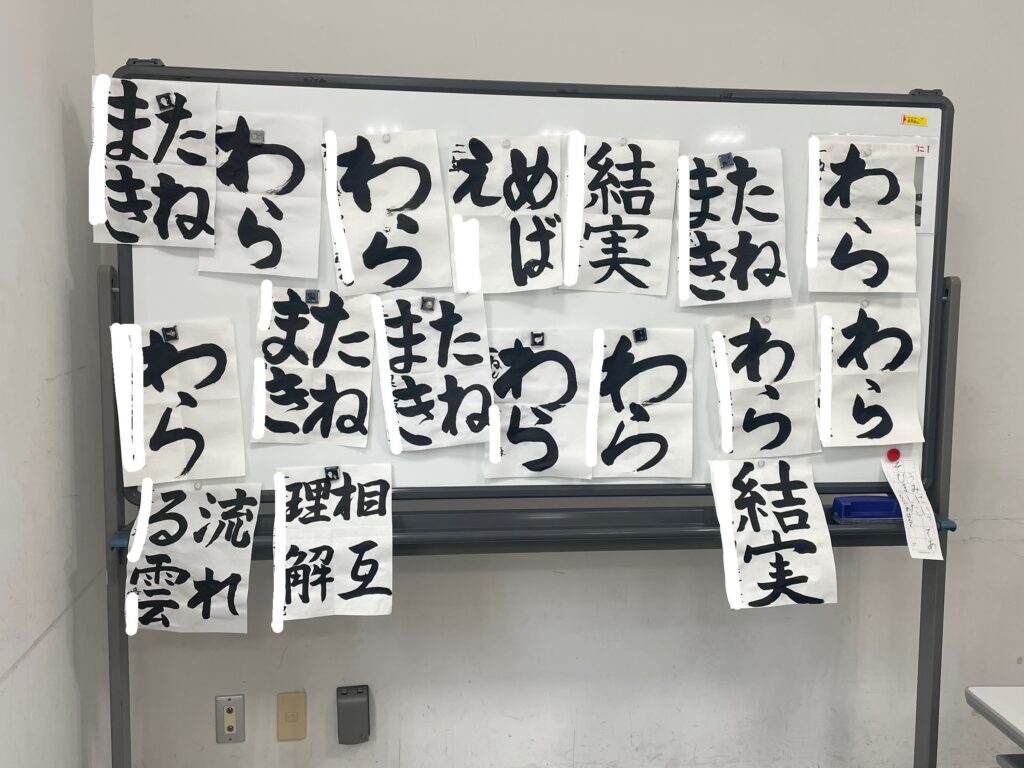 たね
まき
わら
わら
めば
え
結実
たね
まき
わら
に!
わら
たね
まき
たね
まき
わら
わら
わら
わら
流れ
る雲
相互
理解
結実